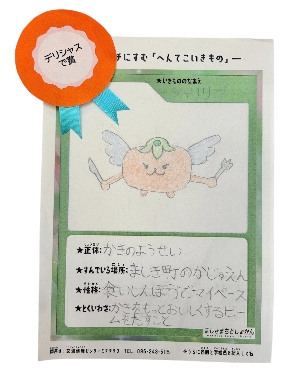 デリシャス
で賞
チにすむ「へんてこいきもの」ー
★いきもののなまえ
★正体:かきのようせい
★すんでいる場所:ましき町のかじゅえん
★性格:食いしんぼうでマイペース
★とくいわざ:かきをもっとおいしくするビー
ムをだすこと